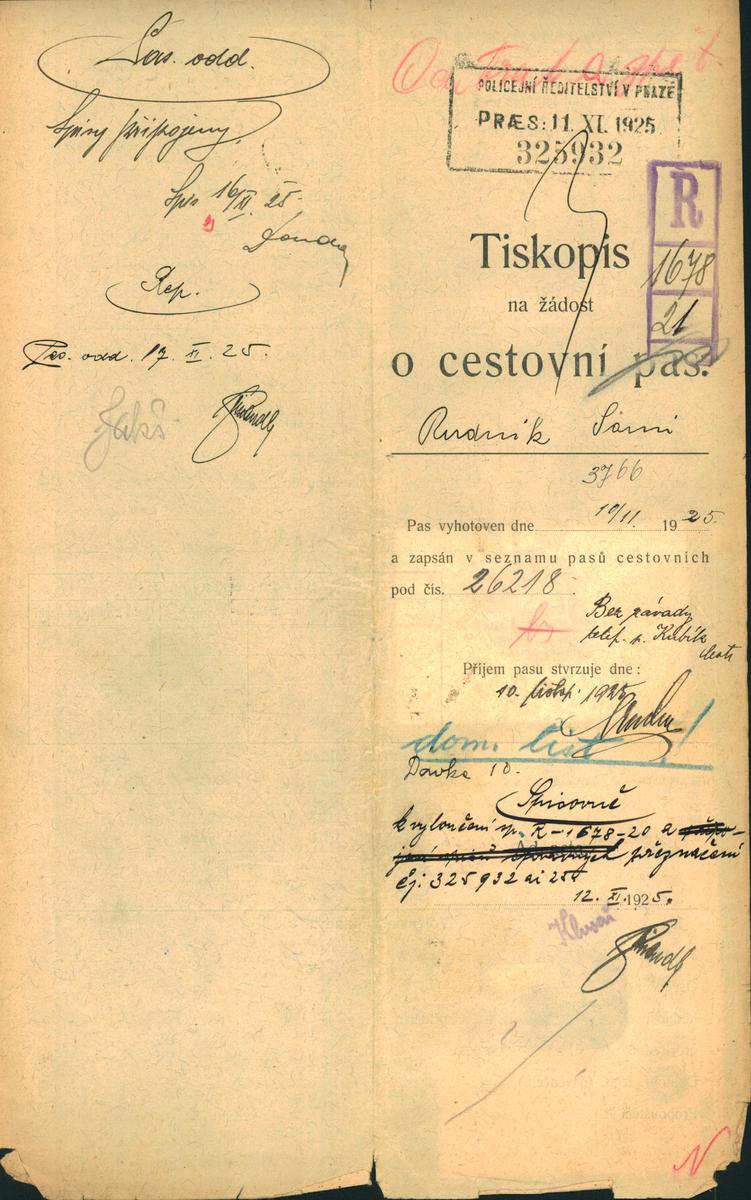 odd.
Spisy připojeny
Spis 16/XI. 25.
Rep.
odd. 17. XI. 25.
Jakš
POLICEJNÍ ŘEDITELSTVÍ V PRAZE
PRÆS: 11. XI. 1925
325932
R
1678
21
Tiskopis
na žádost
o cestovní pas.
Rudnik Sami
3766
Pas vyhotoven dne 10/11. 1925.
a zapsán v seznamu pasů cestovních
pod čís. 26218.
Bez závady
telef. p. Kubík
Příjem pasu stvrzuje dne:
10. listop. 1925
dom. list!
Dávka 10.
Spisovně
k vyloučení sp. R-1678-20 a
přeznačení
čj: 325932 ai 25
12. XI. 1925.
N